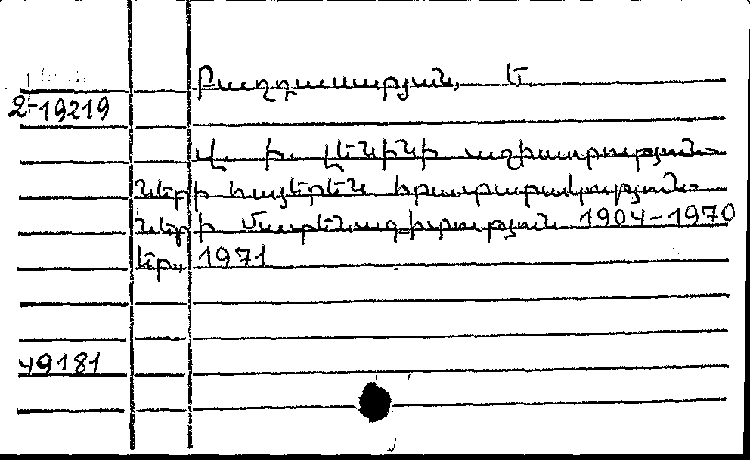 Բաղդասարյան, Ե
2-19219
Վ. Ի. Լենինի աշխատություն-
ների հայերեն հրատարակություն-
ների մատենագիտություն 1904-1970
Եր., 1971
49181